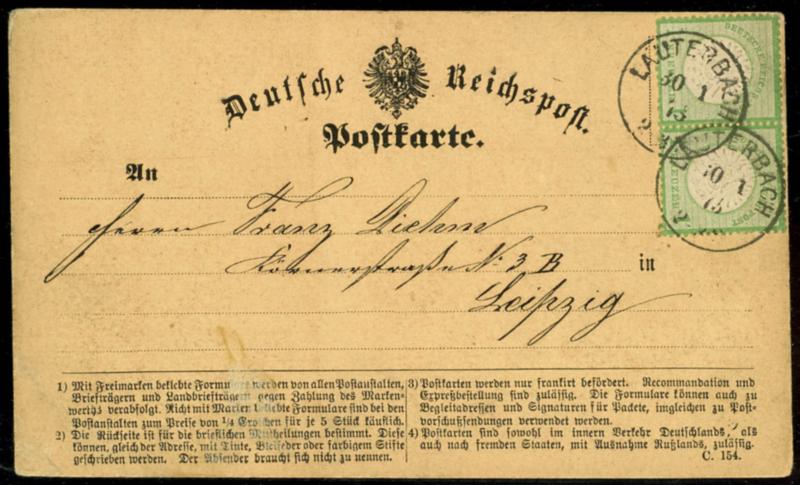 Deutsche Reichspost.
Postkarte.
LAUTERBACH
30 1
75
LAUTERBACH
30 1
75
DEUTSCHES REICH
KREUZER
POST
An
Herrn Franz Diehm
Körnerstraße No. 3 B
in
Leipzig
1) Mit Freimarken beklebte Formulare werden von allen Postanstalten,
Briefträgern und Landbriefträgern gegen Zahlung des Marken-
werths verabfolgt. Nicht mit Marken beklebte Formulare sind bei den
Postanstalten zum Preise von 1/4 Groschen für je 5 Stück käuflich.
2) Die Rückseite ist für die brieflichen Mittheilungen bestimmt. Diese
können, gleich der Adresse, mit Tinte, Bleifeder oder farbigem Stifte
geschrieben werden. Der Absender braucht sich nicht zu nennen.
3) Postkarten werden nur frankirt befördert. Recommandation und
Expreßbestellung sind zulässig. Die Formulare können auch zu
Begleitadressen und Signaturen für Packete, imgleichen zu Post-
vorschußsendungen verwendet werden.
4) Postkarten sind sowohl im innern Verkehr Deutschlands, als
auch nach fremden Staaten, mit Ausnahme Rußlands, zulässig.
C. 154.